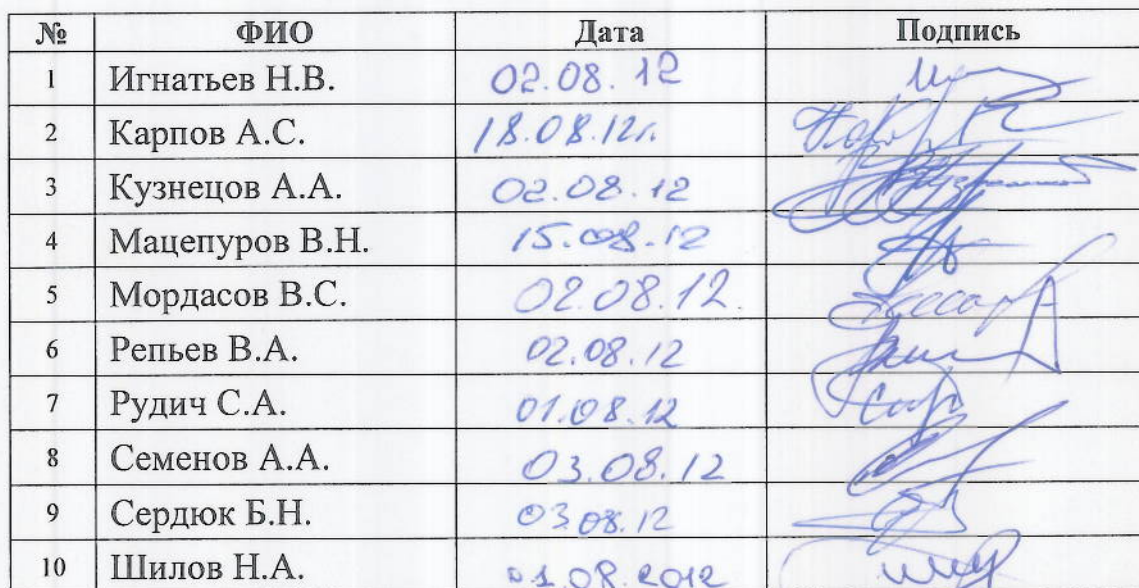 № ФИО Дата Подпись
1 Игнатьев Н.В. 02.08.12
2 Карпов А.С. 18.08.12г.
3 Кузнецов А.А. 02.08.12
4 Мацепуров В.Н. 15.08.12
5 Мордасов В.С. 02.08.12.
6 Репьев В.А. 02.08.12
7 Рудич С.А. 01.08.12
8 Семенов А.А. 03.08.12
9 Сердюк Б.Н. 03.08.12
10 Шилов Н.А. 01.08.2012